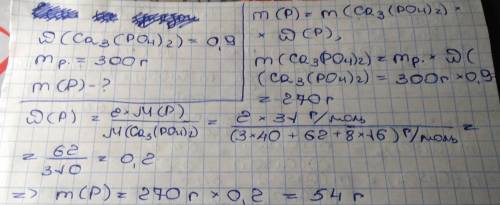 D(Ca₃(PO₄)₂) = 0,9
mр. = 300 г
m(P) - ?
m(P) = m(Ca₃(PO₄)₂) ×
× D(P),
m(Ca₃PO₄)₂) = mр. × D(
(Ca₃(PO₄)₂) = 300г × 0,9
= 270г
D(P) = 2 × M(P) / M(Ca₃(PO₄)₂) = 2 × 31 г/моль / (3×40 + 62 + 8×16) г/моль =
= 62 / 310 = 0,2
=> m(P) = 270 г × 0,2 = 54 г